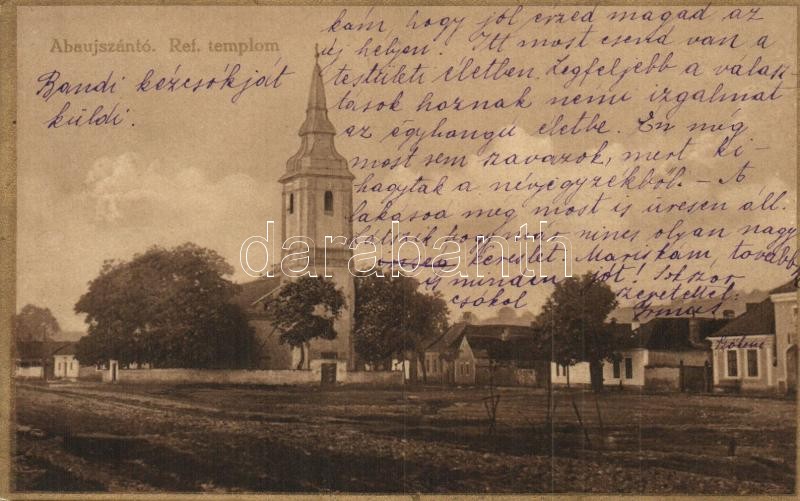 Abaujszántó. Ref. templom
Bandi kézcsókját
küldi.
kám, hogy jól érzed magad az
új helyen. Itt most csend van a
testületi életben. Legfeljebb a válasz-
tások hoznak némi izgalmat
az egyhangú életbe. Én még
most sem szavazok, mert ki-
hagytak a névjegyzékből. - A
lakásod még most is üresen áll.
Látszik hogy már nincs olyan nagy
kereslet. Mariskám, további
is minden jót! Sokszor
csókol szeretettel
Irmus
darabanth.com